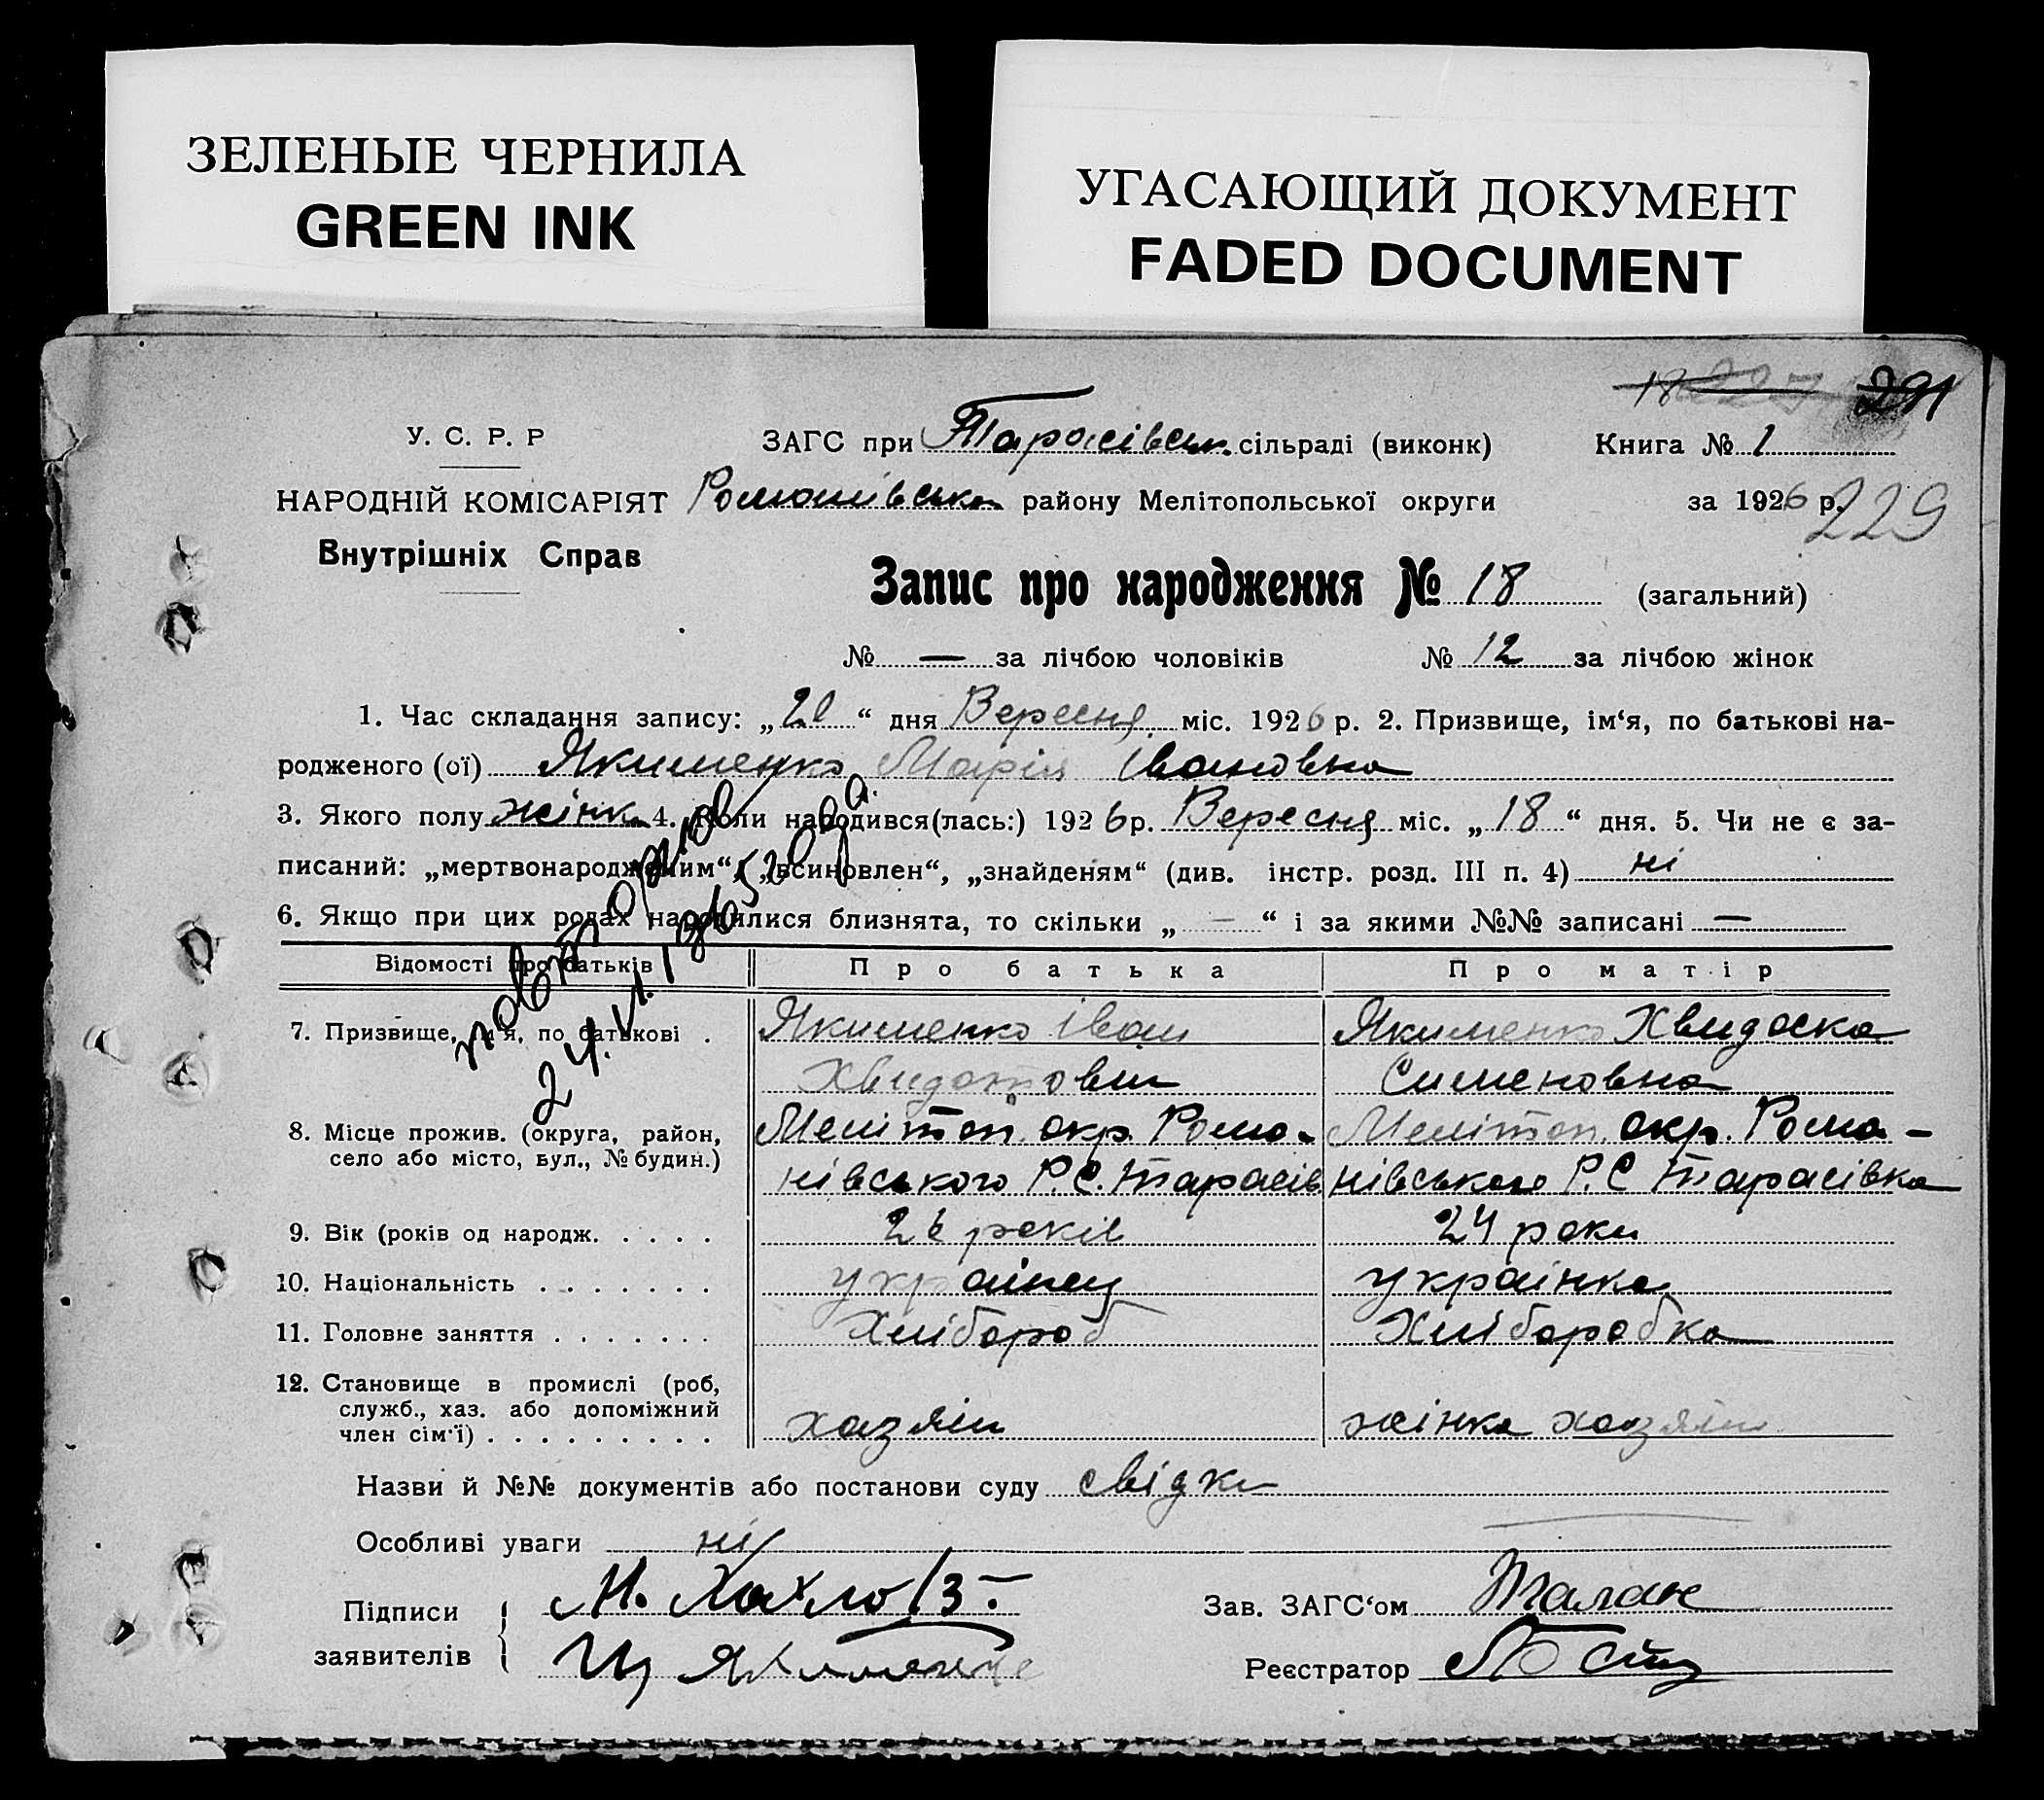 ЗЕЛЕНЫЕ ЧЕРНИЛА
GREEN INK
УГАСАЮЩИЙ ДОКУМЕНТ
FADED DOCUMENT
18 291
У. С. Р. Р ЗАГС при Тарасівськ. сільраді (виконк) Книга № 1
НАРОДНІЙ КОМІСАРІЯТ Романівськ району Мелітопольської округи за 1926 р. 229
Внутрішніх Справ
Запис про народження № 18 (загальний)
№ — за лічбою чоловіків № 12 за лічбою жінок
1. Час складання запису: „20“ дня Вересня міс. 1926 р. 2. Призвище, ім‘я, по батькові на-
родженого (ої) Якименко Марія Івановна
3. Якого полу жінк. 4. Коли народився(лась:) 1926 р. Вересня міс. „18“ дня. 5. Чи не є за-
писаний: „мертвонародженим“, „всиновлен“, „знайденям“ (див. інстр. розд. III п. 4) ні
6. Якщо при цих родах народилися близнята, то скільки „ — “ і за якими №№ записані —
Відомості про батьків Про батька Про матір
7. Призвище, ім‘я, по батькові . Якименко Іван Якименко Хвидоска
Хвидотовин Сименовна
8. Місце прожив. (округа, район, Меліт оп. окр. Рома- Мелітоп. окр. Рома-
село або місто, вул., № будин.) нівського Р.С. Тарасів нівського Р.С Тарасівка
9. Вік (років од народж. . . . . 26 років 24 роки
10. Національність . . . . . . . українец українка
11. Головне заняття . . . . . . . Хлібороб Хлiборобка
12. Становище в промислі (роб,
служб., хаз. або допоміжний
член сім‘ї) . . . . . . . . . хазяін жінка хазяін
Назви й №№ документів або постанови суду свідки
Особливі уваги ні
Підписи М. Хохло Зав. ЗАГС‘ом Талан
заявителів Якименко Реєстратор